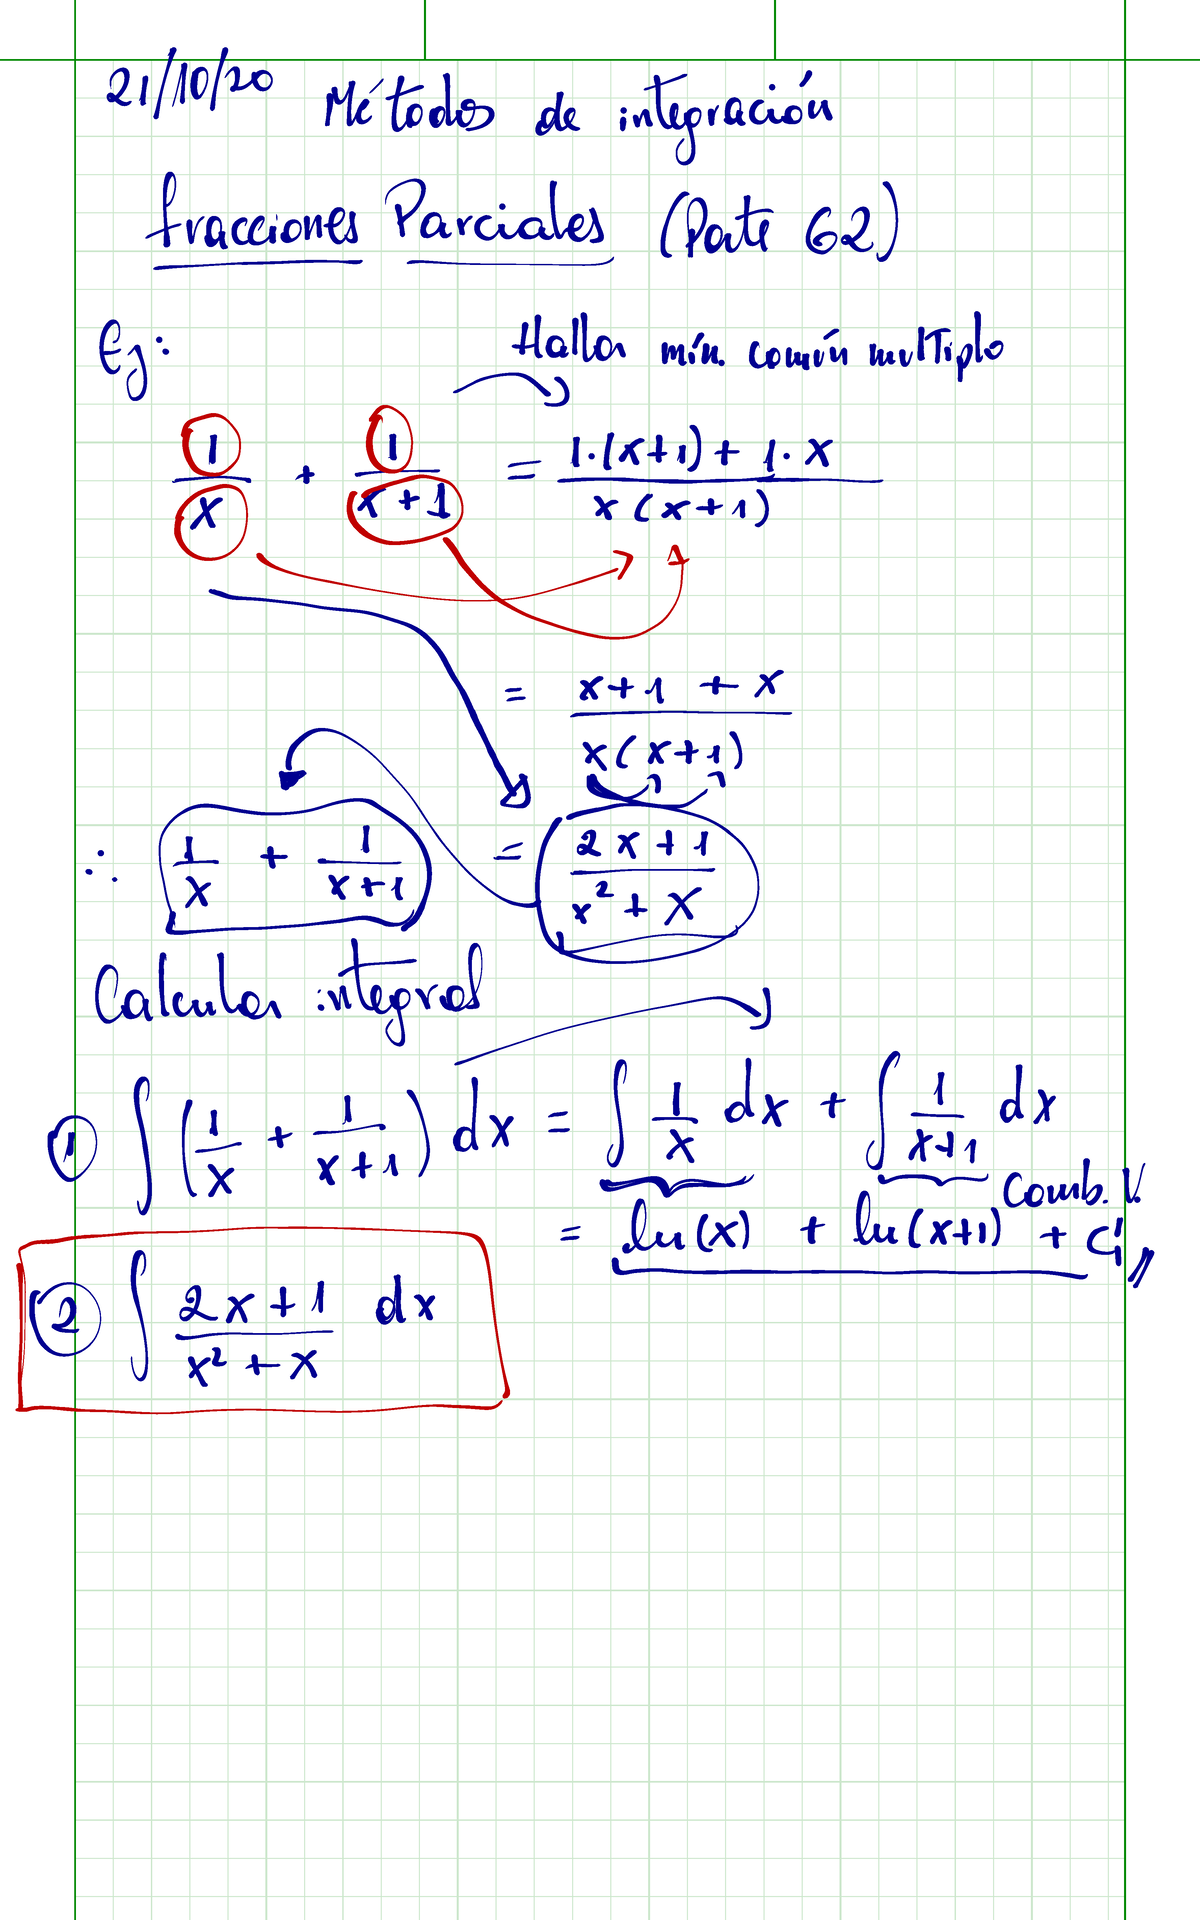 21/10/20 Métodos de integración
fracciones Parciales (Parte G2)
Ej: Hallar mín. común multiplo
1/x + 1/(x+1) = (1·(x+1) + 1·x)/(x(x+1))
= (x+1 + x)/(x(x+1))
∴ 1/x + 1/(x+1) = (2x+1)/(x² + x)
Calcular integral
① ∫ (1/x + 1/(x+1)) dx = ∫ 1/x dx + ∫ 1/(x+1) dx
Comb. V.
= ln(x) + ln(x+1) + C₁
② ∫ (2x+1)/(x² + x) dx